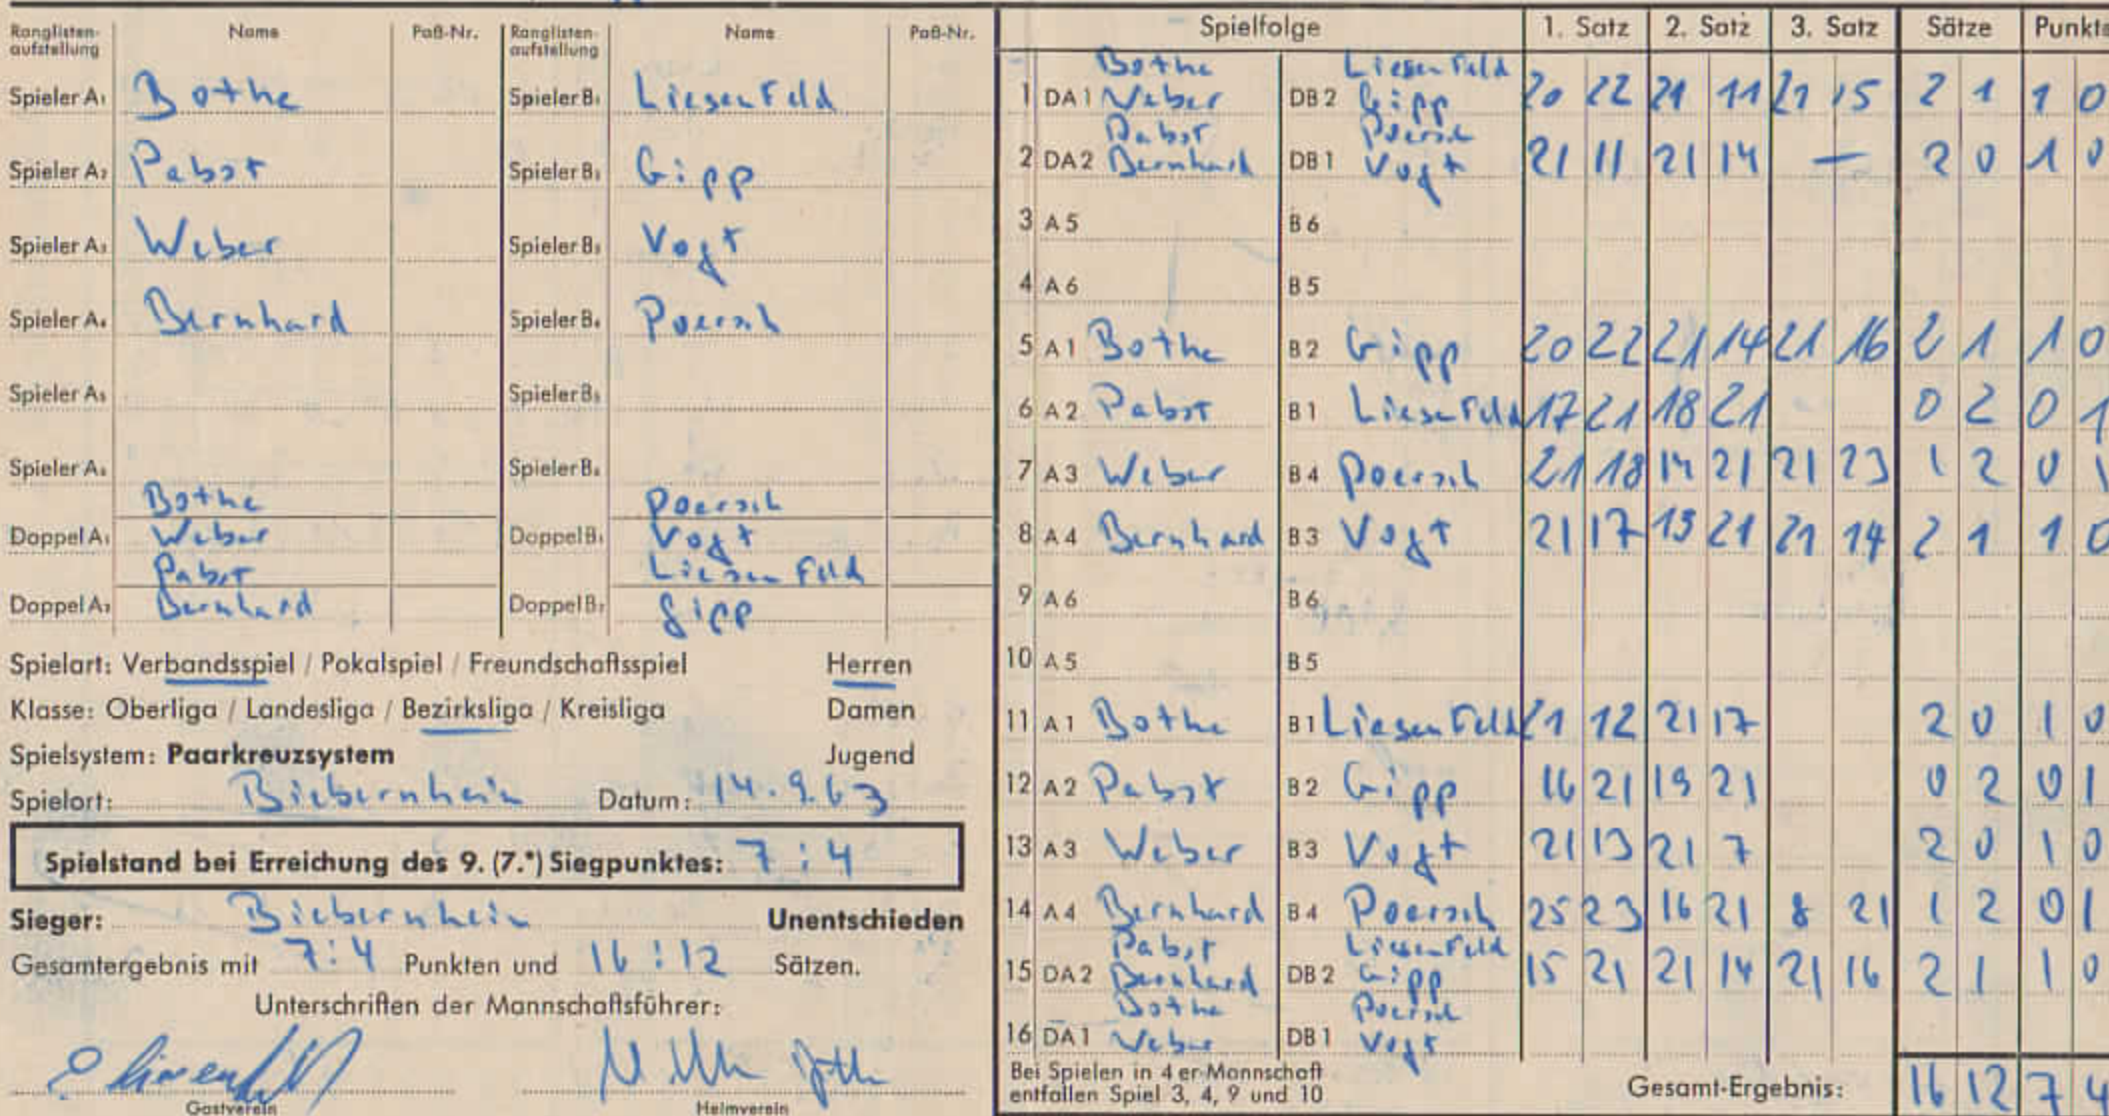 Ranglisten-aufstellung Name Paß-Nr. Ranglisten-aufstellung Name Paß-Nr.
Spieler A1 Bothe Spieler B1 Liesenfeld
Spieler A2 Pabst Spieler B2 Gipp
Spieler A3 Weber Spieler B3 Vogt
Spieler A4 Bernhard Spieler B4 Poersch
Spieler A5 Spieler B5
Spieler A6 Spieler B6
Bothe Poersch
Doppel A1 Weber Doppel B1 Vogt
Pabst Liesenfeld
Doppel A2 Bernhard Doppel B2 Gipp
Spielart: Verbandsspiel / Pokalspiel / Freundschaftsspiel Herren
Klasse: Oberliga / Landesliga / Bezirksliga / Kreisliga Damen
Spielsystem: Paarkreuzsystem Jugend
Spielort: Biebernheim Datum: 14.9.63
Spielstand bei Erreichung des 9. (7.*) Siegpunktes: 7:4
Sieger: Biebernheim Unentschieden
Gesamtergebnis mit 7:4 Punkten und 16:12 Sätzen.
Unterschriften der Mannschaftsführer:
Gastverein Heimverein
Spielfolge 1. Satz 2. Satz 3. Satz Sätze Punkte
Bothe Liesenfeld
1 DA1 Weber DB2 Gipp 20 22 21 11 21 15 2 1 1 0
Pabst Poersch
2 DA2 Bernhard DB1 Vogt 21 11 21 14 — 2 0 1 0
3 A5 B6
4 A6 B5
5 A1 Bothe B2 Gipp 20 22 21 14 21 16 2 1 1 0
6 A2 Pabst B1 Liesenfeld 17 21 18 21 0 2 0 1
7 A3 Weber B4 Poersch 21 18 14 21 21 23 1 2 0 1
8 A4 Bernhard B3 Vogt 21 17 13 21 21 14 2 1 1 0
9 A6 B6
10 A5 B5
11 A1 Bothe B1 Liesenfeld 21 12 21 17 2 0 1 0
12 A2 Pabst B2 Gipp 16 21 19 21 0 2 0 1
13 A3 Weber B3 Vogt 21 13 21 7 2 0 1 0
14 A4 Bernhard B4 Poersch 25 23 16 21 8 21 1 2 0 1
Pabst Liesenfeld
15 DA2 Bernhard DB2 Gipp 15 21 21 14 21 16 2 1 1 0
Bothe Poersch
16 DA1 Weber DB1 Vogt
Bei Spielen in 4er-Mannschaft
entfallen Spiel 3, 4, 9 und 10 Gesamt-Ergebnis: 16 12 7 4